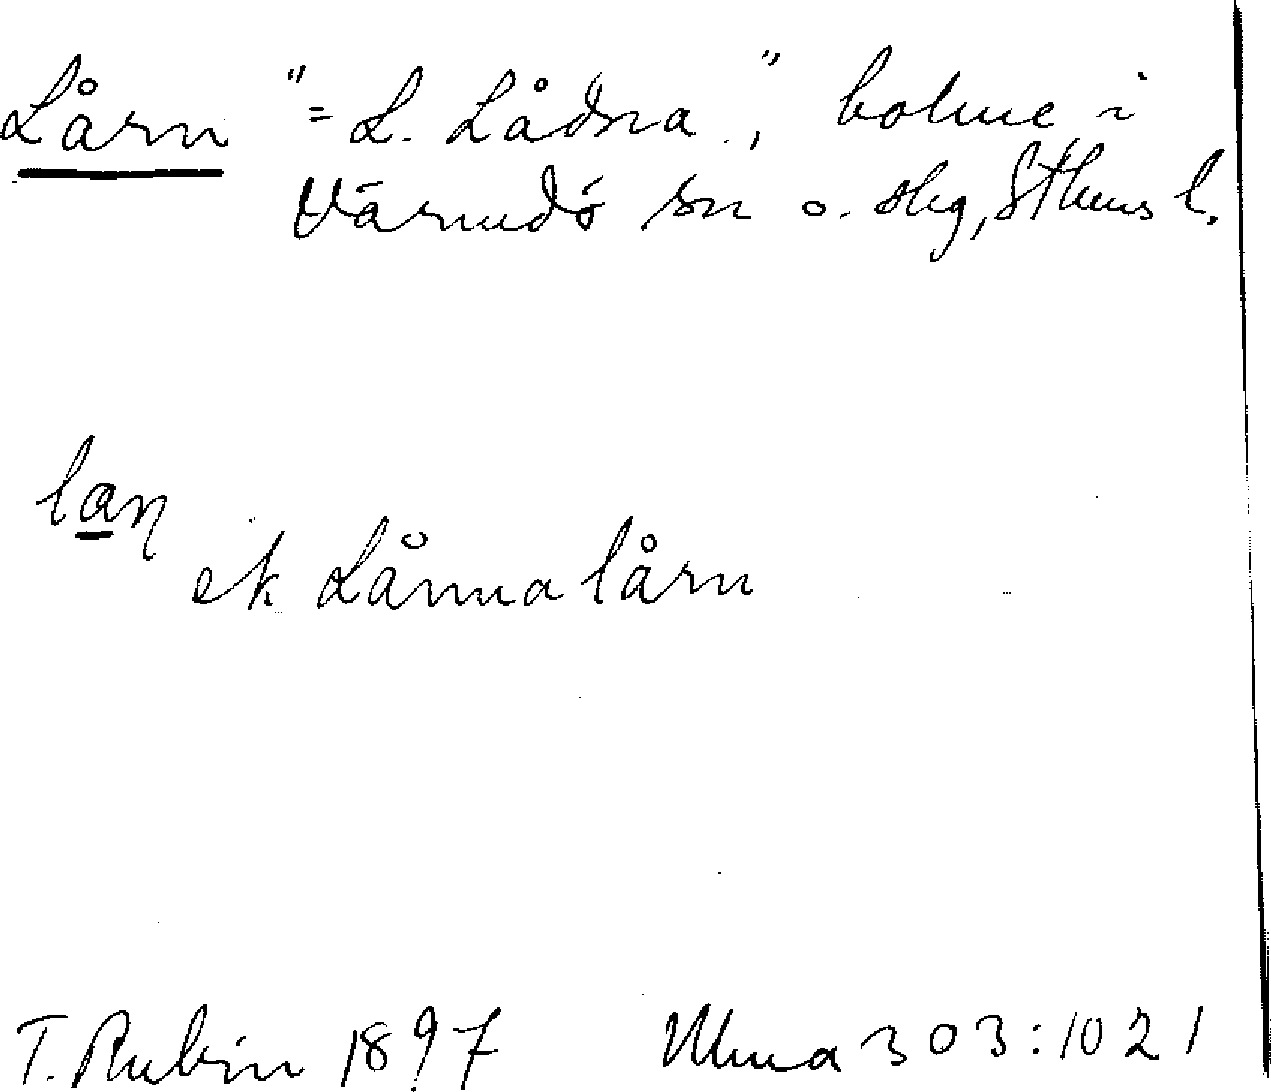 Lårn "= L. Lådna.," boline i
Värmdö sn o. skg, Sthms l.
lan
ek Lånna lårn
T. Rubin 1897 Ulma 303:1021